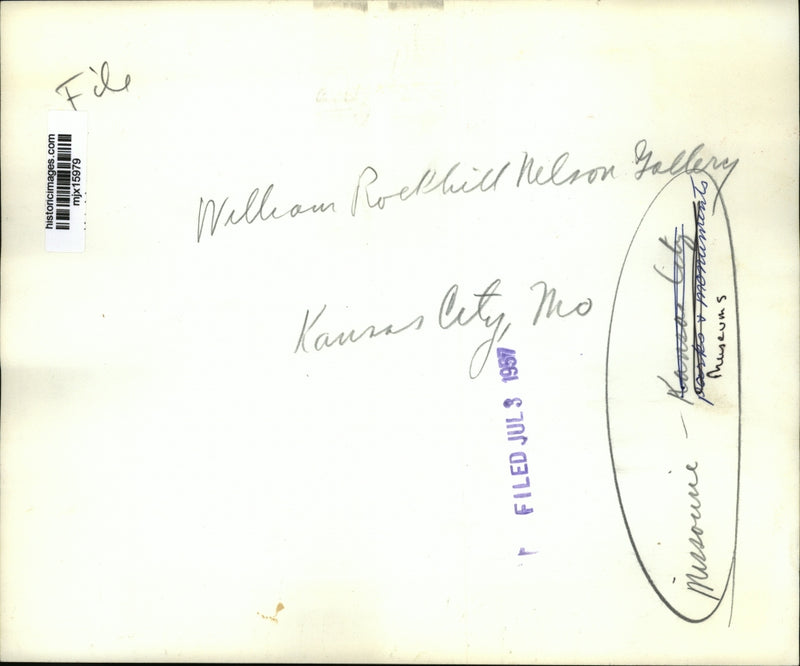 File
historicimages.com
mjx15979
William Rockhill Nelson Gallery
Kansas City, Mo
FILED JUL 3 1957
Missourie - Kansas City
parks & monuments
Museums